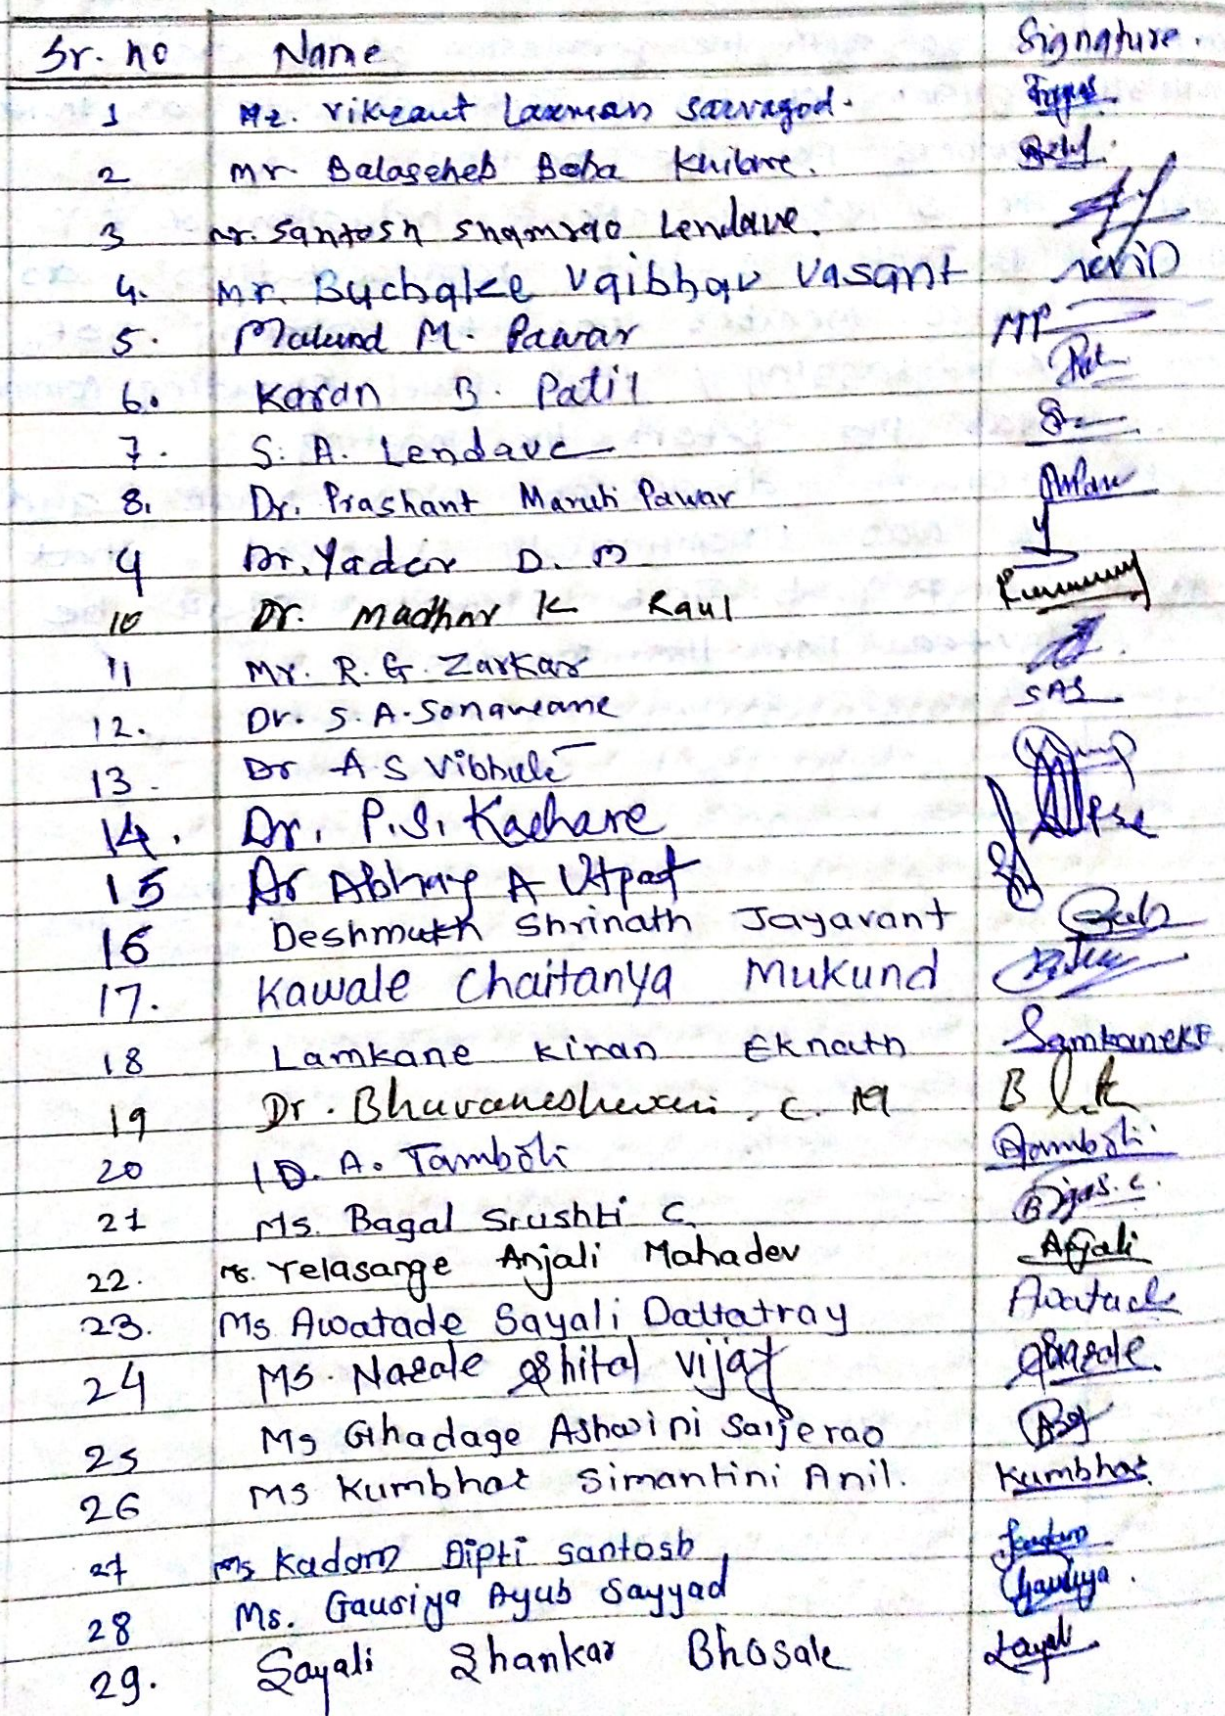 Sr. no Name Signature.
1 Mr. Vikrant Laxman Sarvagod.
2 Mr. Balasaheb Baba Khilare.
3 Mr. Santosh Shamrao Lendave.
4. Mr. Buchake Vaibhav Vasant
5. M. Pawar MP
6. Karan B. Patil
7. S. A. Lendave
8. Dr. Prashant Maruti Pawar
9 Dr. Yadav D. M
10 Dr. Madhav K Raul
11 Mr. R. G. Zarkar
12. Dr. S. A. Sonawane SAS
13. Dr A S Vibhute
14. Dr. P. S. Kachare
15 Dr Abhay A Utpat
16 Deshmukh Shrinath Jayavant
17. Kawale Chaitanya Mukund
18 Lamkane Kiran Eknath Lamkane KE
19 Dr. Bhuvaneshwari. C. M
20 D. A. Tamboli Tamboli
21 Ms. Bagal Srushti C
22. Ms. Yelasange Anjali Mahadev Anjali
23. Ms Awatade Sayali Dattatray Awatade
24 Ms. Nazale Shital Vijay Nazale.
25 Ms Ghadage Ashwini Sarjerao
26 Ms Kumbhar Simantini Anil. Kumbhar
27 Ms Kadam Dipti Santosh
28 Ms. Gausiya Ayub Sayyad Gausiya.
29. Sayali Shankar Bhosale Sayali